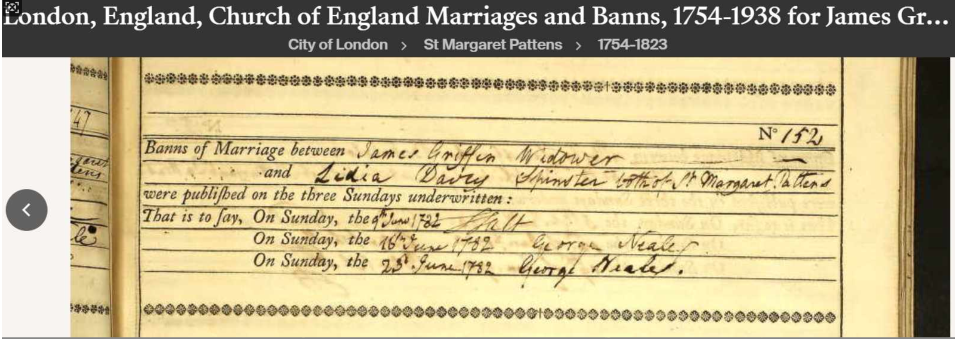 London, England, Church of England Marriages and Banns, 1754-1938 for James Gr...
City of London > St Margaret Pattens > 1754-1823
N° 152
Banns of Marriage between James Griffin Widower
and Lidia Davey Spinster both of St Margaret Pattens
were publiſhed on the three Sundays underwritten :
That is to ſay, On Sunday, the 9th June 1782
On Sunday, the 16th June 1782 George Neale
On Sunday, the 23d June 1782 George Neale.